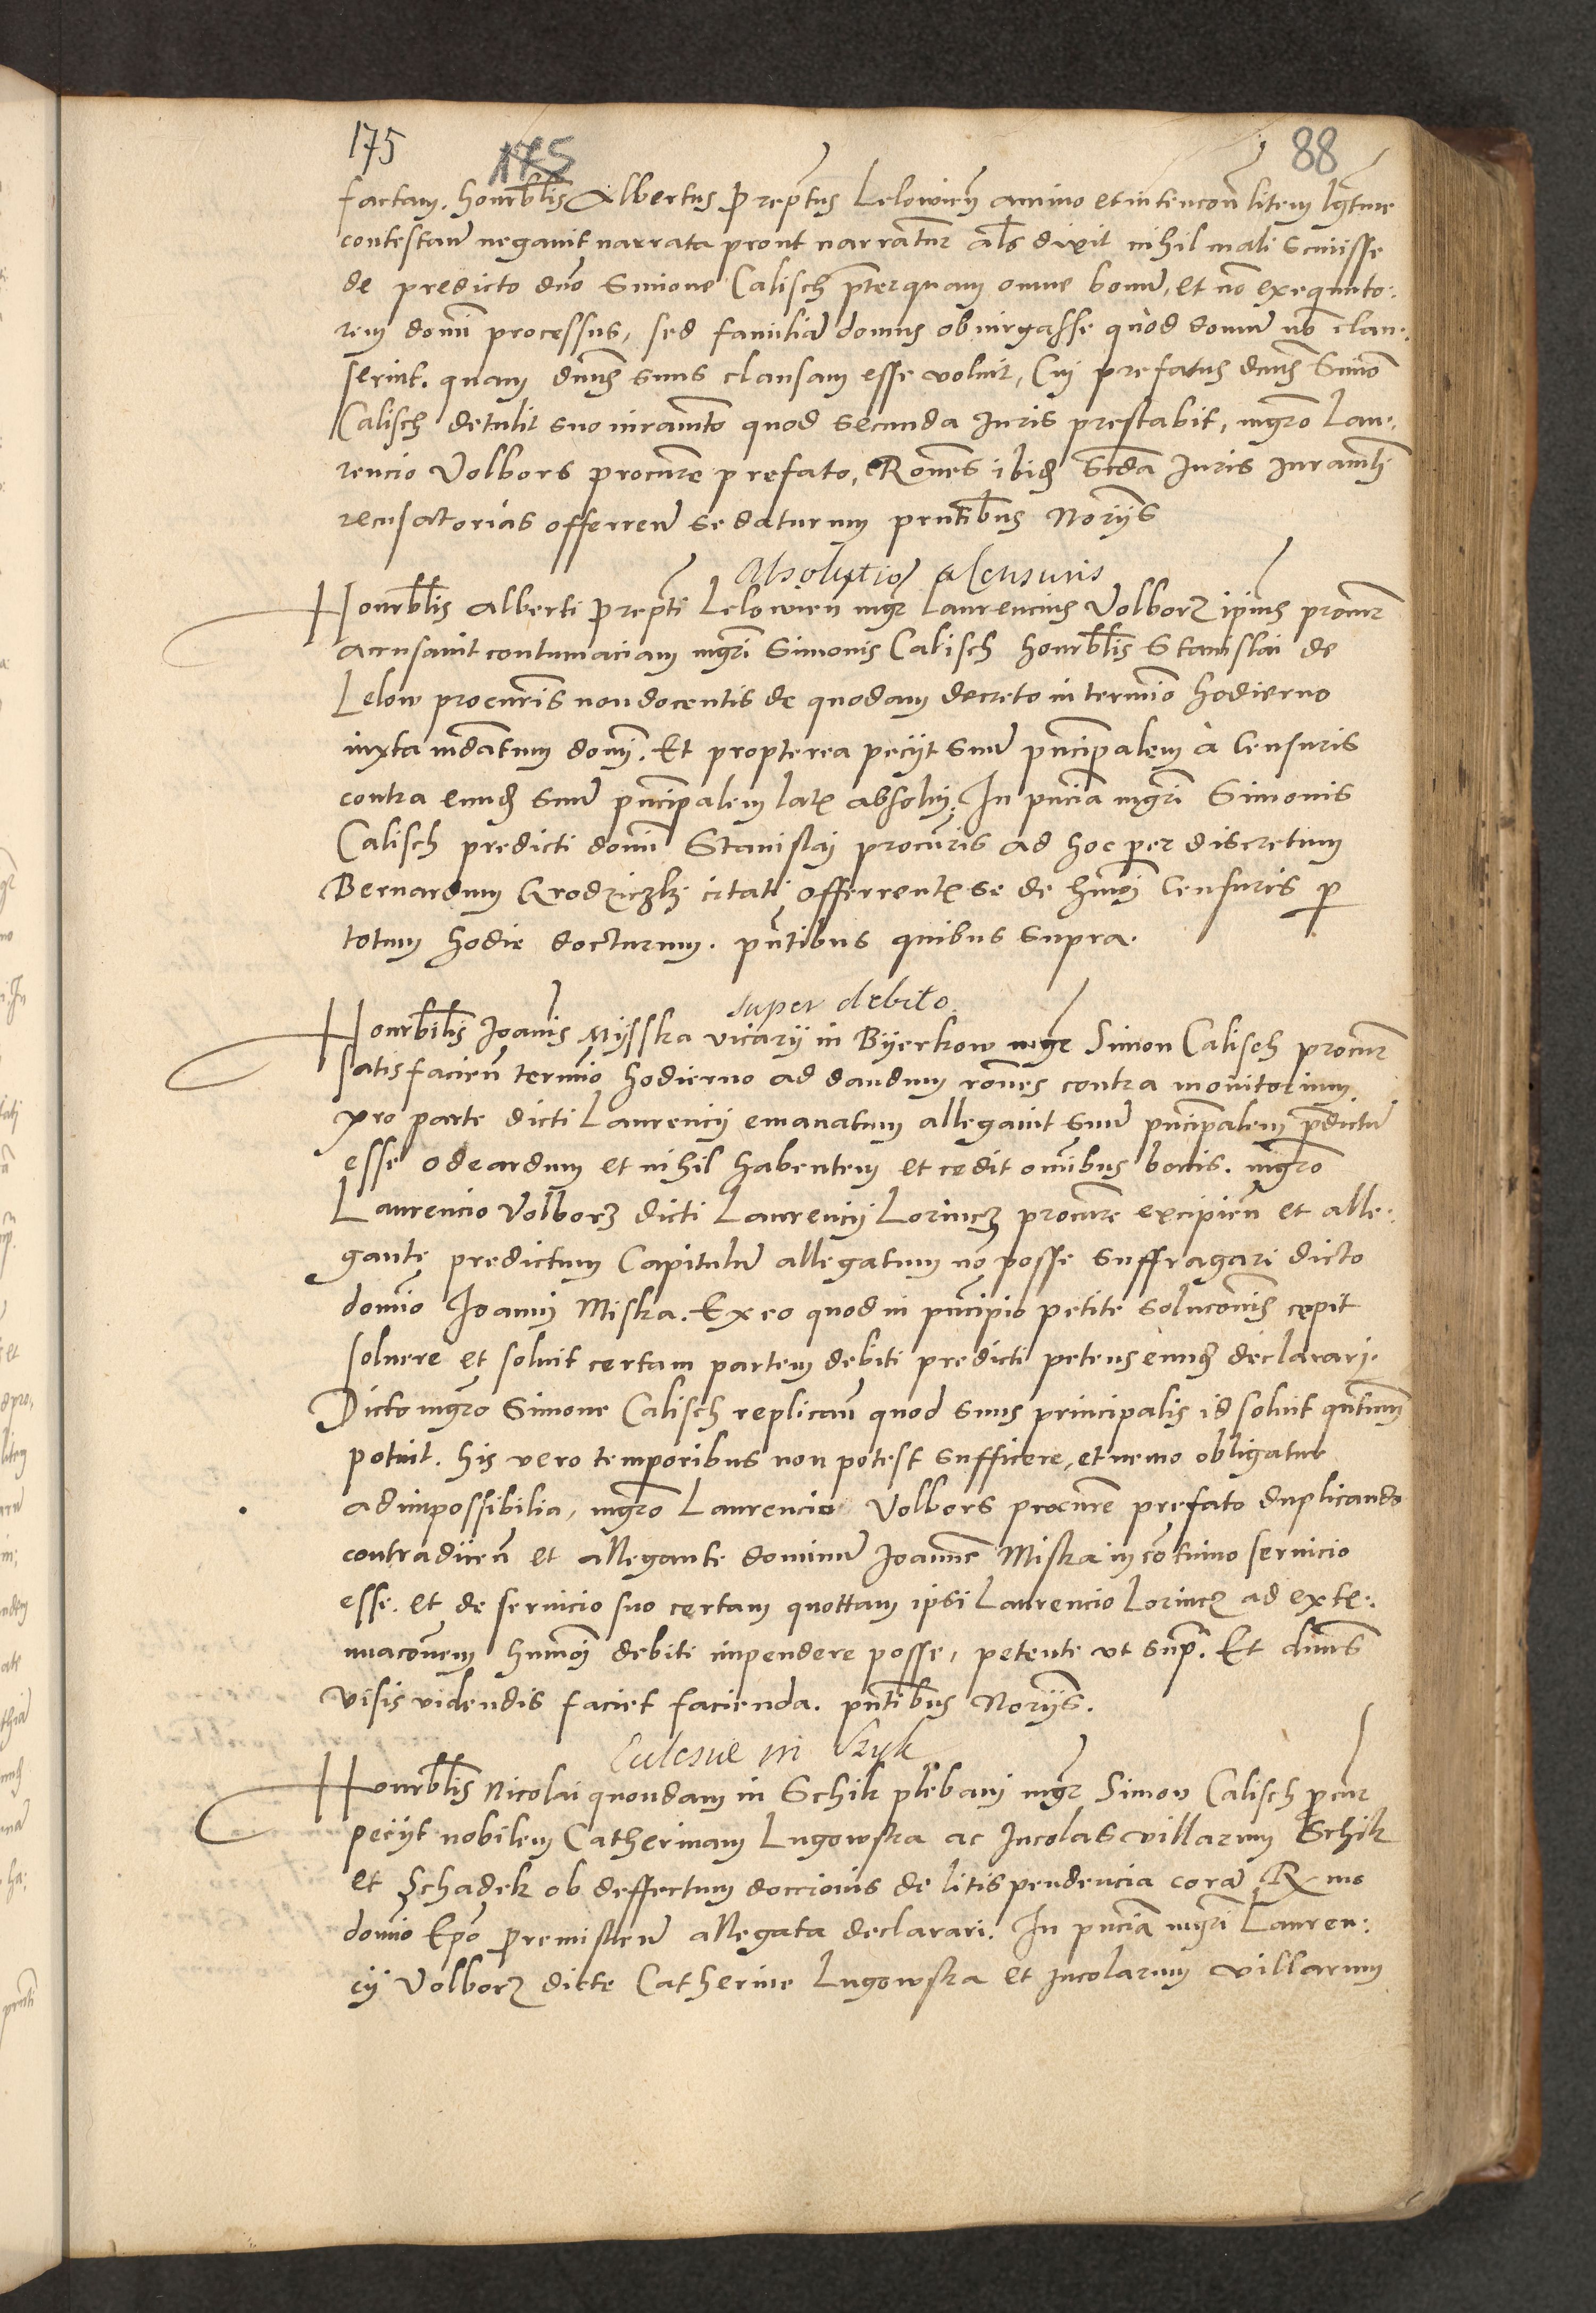 175
175
88
factam. honrblis Albertus Preptus Lelowien animo et intencon litem lgtme
contestan negavit narrata prout narrantur als dixit nihil mali scivisse
de predicto dno Simone Calisch pterquam omne bonum, et no exequuto-
rem domi processus, sed familia domus obiurgasse quod domum no clau-
serint. quam dnus suus clausam esse voluit, Cui prefatus dnus Simo
Calisch detulit suo iuramto quod secunda Juris prestabit, mgro Lau-
rencio Volbors procure prefato, Rones ibid scda Juris Juramti
recusatorias offerren se daturum pntibus Noriis
Absolutio a censuris
Honrblis Alberti Prepti Lelowien mgr Laurencius Volborz ipius procur
accusavit contumaciam mgri Simonis Calisch honrblis Stanislai de
Lelow procuris non docentis de quodam decreto in termio hodierno
iuxta mdatum domi. Et propterea peciit suum pncipalem a Censuris
contra eund suum pncipalem lat absolvi. In pncia mgri Simonis
Calisch predicti domi Stanislai procuris ad hoc per discretum
Bernardum Grodziczki citati offerrent se de hmoi Censuris p
totum hodie docturum. pntibus quibus supra.
super debito
Honrblis Joanis Mysska vicarii in Byerkow mgr Simon Calisch procur
satisfacien termio hodierno ad dandum rones contra monitorium
pro parte dicti Laurencii emanatum allegavit suum pncipalem pdictu
esse odeardum et nihil habentem et cedit omibus bonis. mgro
Laurencio Volborz dicti Laurencii Lorincz procure excipien et alle-
gante predictum Capitulum allegatum no posse suffragari dicto
domio Joanni Miska. Ex eo quod in pncipio petite solucionis cepit
solvere et solvit certam partem debiti predicti petens eund declarari.
Dicto mgro Simone Calisch replican quod suus principalis id solvit quntum
potuit. his vero temporibus non potest sufficere, et nemo obligatur
ad impossibilia, mgro Laurencio Volbors procure prefato duplicando
contradicen et allegante dominum Joanne Miska in continuo servicio
esse. et de servicio suo certam quottam ipsi Laurencio Lorincz ad exte-
nuaconem hmoi debiti impendere posse, petente ut sup. Et dnus
visis videndis faciet facienda. pntibus Noriis.
in Szyk
Honrblis Nicolai quondam in Schik plebani mgr Simon Calisch pcur
peciit nobilem Catherinam Lugowska ac Incolas villarum Schik
et Schadek ob deffectum doccionis de litispendencia coram Rmo
domio Epo Premislien allegata declarari. In pncia mgri Lauren-
cii Volborz dicte Catherine Lugowska et Incolarum villarum